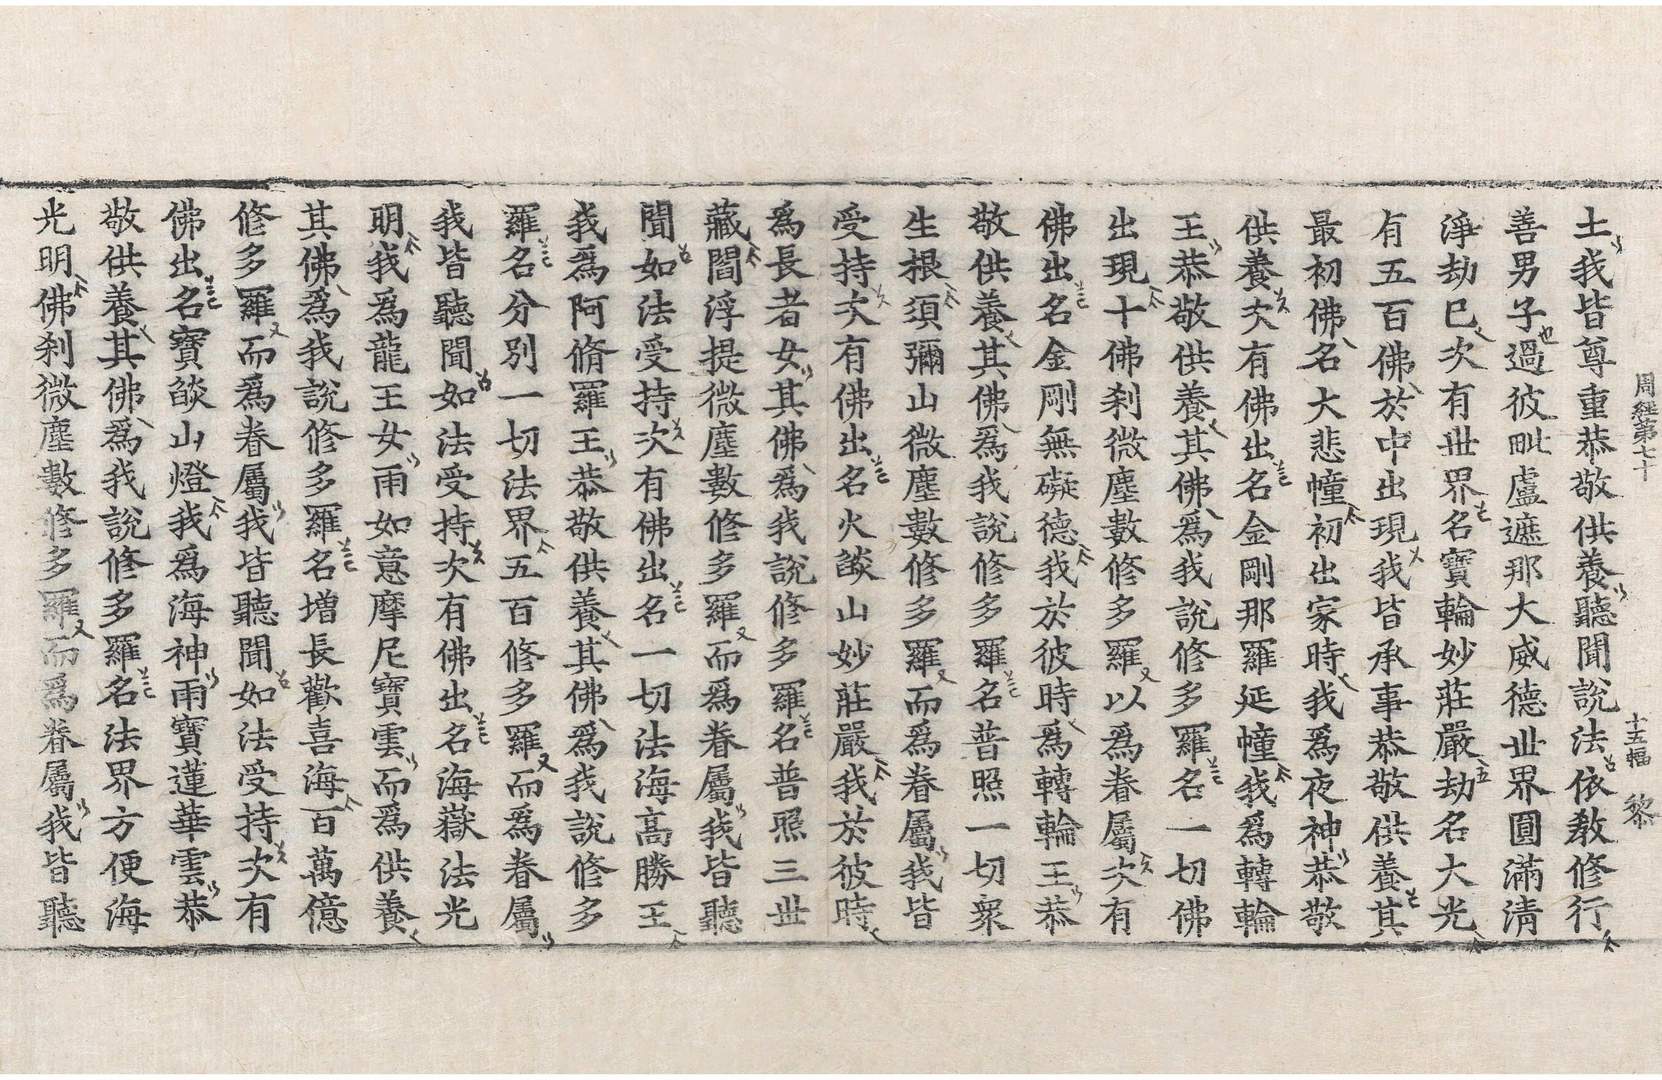 周經第七十　十五幅　黎
土我皆尊重恭敬供養聽聞說法依教修行
善男子過彼毗盧遮那大威德世界圓滿清
淨劫已次有世界名寶輪妙莊嚴劫名大光
有五百佛於中出現我皆承事恭敬供養其
最初佛名大悲幢初出家時我爲夜神恭敬
供養次有佛出名金剛那羅延幢我爲轉輪
王恭敬供養其佛爲我說修多羅名一切佛
出現十佛刹微塵數修多羅以爲眷屬次有
佛出名金剛無礙德我於彼時爲轉輪王恭
敬供養其佛爲我說修多羅名普照一切衆
生根須彌山微塵數修多羅而爲眷屬我皆
受持次有佛出名火燄山妙莊嚴我於彼時
爲長者女其佛爲我說修多羅名普照三世
藏閻浮提微塵數修多羅而爲眷屬我皆聽
聞如法受持次有佛出名一切法海高勝王
我爲阿脩羅王恭敬供養其佛爲我說修多
羅名分別一切法界五百修多羅而爲眷屬
我皆聽聞如法受持次有佛出名海嶽法光
明我爲龍王女雨如意摩尼寶雲而爲供養
其佛爲我說修多羅名增長歡喜海百萬億
修多羅而爲眷屬我皆聽聞如法受持次有
佛出名寶燄山燈我爲海神雨寶蓮華雲恭
敬供養其佛爲我說修多羅名法界方便海
光明佛刹微塵數修多羅而爲眷屬我皆聽